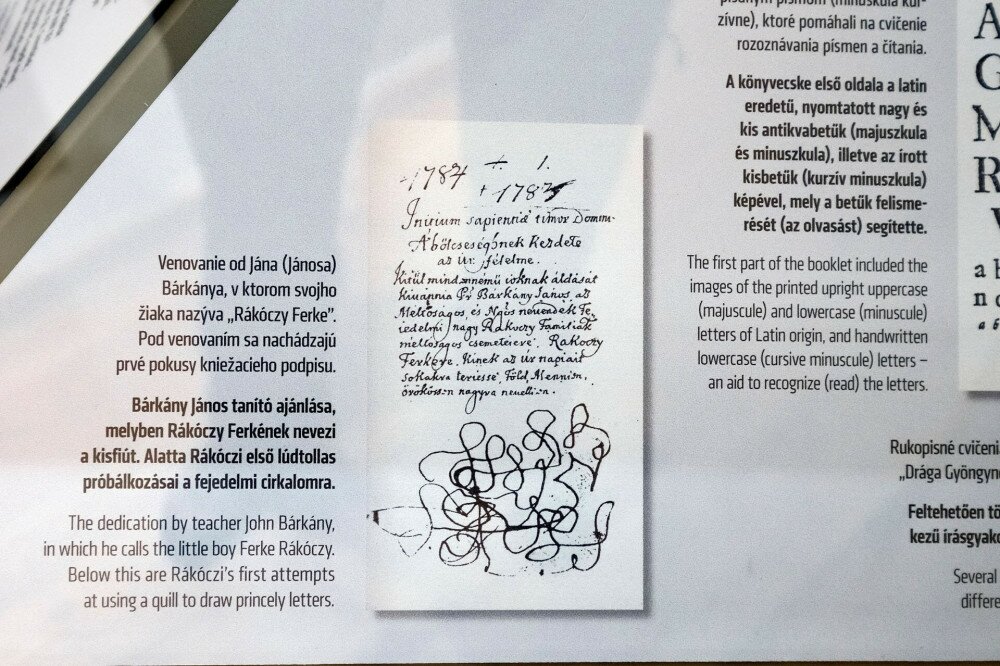 Venovanie od Jána (Jánosa)
Bárkánya, v ktorom svojho
žiaka nazýva „Rákóczy Ferke”.
Pod venovaním sa nachádzajú
prvé pokusy kniežacieho podpisu.
Bárkány János tanító ajánlása,
melyben Rákóczy Ferkének nevezi
a kisfiút. Alatta Rákóczi első lúdtollas
próbálkozásai a fejedelmi cirkalomra.
The dedication by teacher John Bárkány,
in which he calls the little boy Ferke Rákóczy.
Below this are Rákóczi’s first attempts
at using a quill to draw princely letters.
1784 1.
Initium sapientiæ timor Domini
A bölcseségönek kezdete
az úr félelme.
Kitül mindennémű ioknak áldását
kiuánnia Pr Bárkány János, az
Méltóságos, és Ngōs neuendék Fe,
iedelmi nagy Rákoczy Familiák
méltóságos csemeteiere, Rákoczy
Ferkére. Kinek az úr napiait
sokakra teriesse, Föld, Mennien,
örökössen nagyra neuellien.
zívne), ktoré pomáhali na cvičenie
rozoznávania písmen a čítania.
A könyvecske első oldala a latin
eredetű, nyomtatott nagy és
kis antikvabetűk (majuszkula
és minuszkula), illetve az írott
kisbetűk (kurzív minuszkula)
képével, mely a betűk felisme-
rését (az olvasást) segítette.
The first part of the booklet included the
images of the printed upright uppercase
(majuscule) and lowercase (minuscule)
letters of Latin origin, and handwritten
lowercase (cursive minuscule) letters –
an aid to recognize (read) the letters.
A
G
M
R
a b
n o
a b
Rukopisné cvičenia
„Drága Gyöngyn
Feltehetően tö
kezű írásgyako
Several
differe